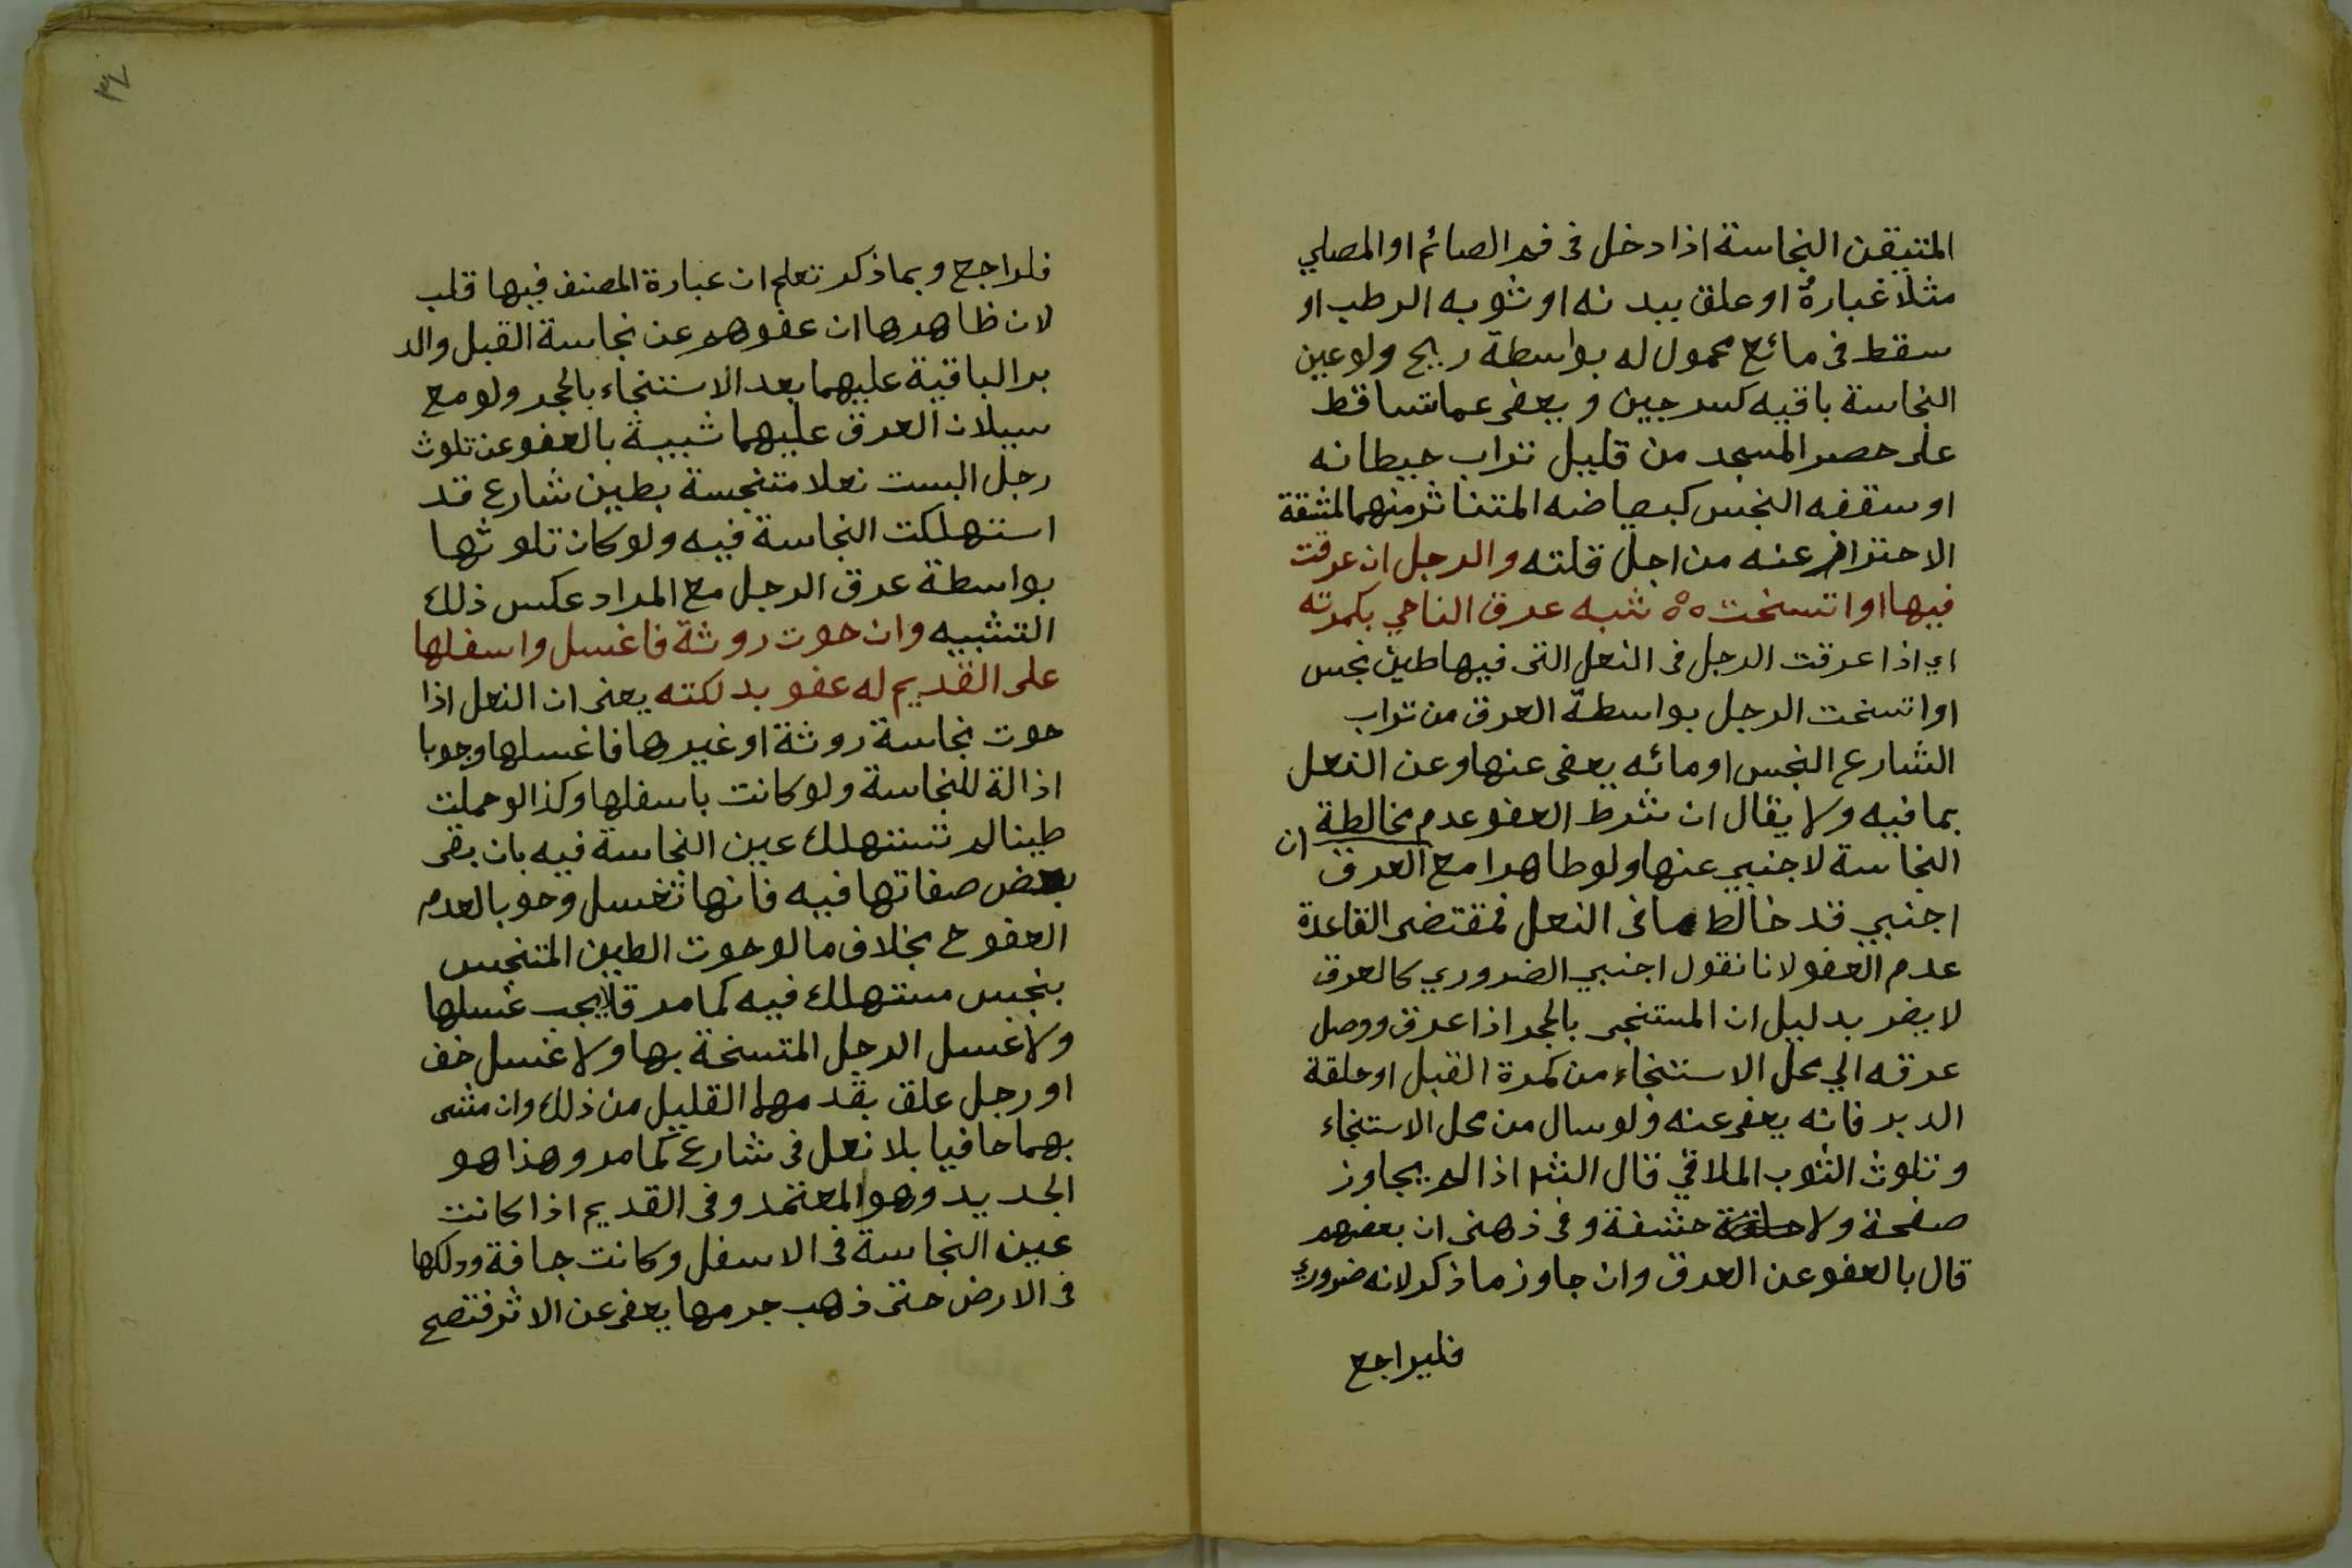 المتيقن النجاسة اذا دخل فى فم الصائم او المصلي
مثلا غباره او علق ببدنه او ثوبه الرطب او
سقط فى مائع محمول له بواسطة ريح ولو عين
النجاسة باقيه كسرجين و يعفى عما تساقط
على حصر المسجد من قليل تراب حيطانه
او سقفه النجس كبياضه المتناثر منهما لمشقة
الاحتراز عنه من اجل قلته والرجل ان عرقت
فيها او اتسخت ٥٥ شبه عرق الناجي بكمرته
اي اذا عرقت الرجل فى النعل التى فيها طين نجس
او اتسخت الرجل بواسطة العرق من تراب
الشارع النجس او مائه يعفى عنها وعن النعل
بما فيه ولا يقال ان شرط العفو عدم مخالطة
النجاسة لاجنبي عنها ولو طاهرا مع ان العرق
اجنبي قد خالط ما فى النعل فمقتضى القاعدة
عدم العفو لانا نقول اجنبي الضروري كالعرق
لا يضر بدليل ان المستنجى بالحجر اذا عرق ووصل
عرقه الي محل الاستنجاء من كمرة القبل او حلقة
الدبر فانه يعفى عنه ولو سال من محل الاستنجاء
وتلوث الثوب الملاقي قال النشر اذا لم يجاوز
صفحة ولا حشفة و فى ذهنى ان بعضهم
قال بالعفو عن العرق وان جاوز ما ذكر لانه ضروري
فليراجع
٣٤
فلراجع وبما ذكر تعلم ان عبارة المصنف فيها قلب
لان ظاهرها ان عفوهم عن نجاسة القبل والد
بر الباقية عليهما بعد الاستنجاء بالحجر ولو مع
سيلان العرق عليهما شبيهة بالعفو عن تلوث
رجل البست نعلا متنجسة بطين شارع قد
استهلكت النجاسة فيه ولو كان تلوثها
بواسطة عرق الرجل مع المراد عكس ذلك
التشبيه وان حوت روثة فاغسل واسفلها
على القديم له عفو بدلكته يعنى ان النعل اذا
حوت نجاسة روثة او غيرها فاغسلها وجوبا
اذالة للنجاسة ولو كانت باسفلها وكذا لو حملت
طينا لم تستهلك عين النجاسة فيه بان بقى
بعض صفاتها فيه فانها تغسل وجوبا لعدم
العفو ح بخلاف ما لو حوت الطين المتنجس
بنجس مستهلك فيه كما مر فلا يجب غسلها
ولا غسل الرجل المتسخة بها ولا غسل خف
او رجل علق بقدمها القليل من ذلك وان مشى
بهما حافيا بلا نعل فى شارع كما مر وهذا هو
الجديد وهو المعتمد وفى القديم اذا كانت
عين النجاسة فى الاسفل وكانت جافة ودلكها
فى الارض حتى ذهب جرمها يعفى عن الاثر فتصح